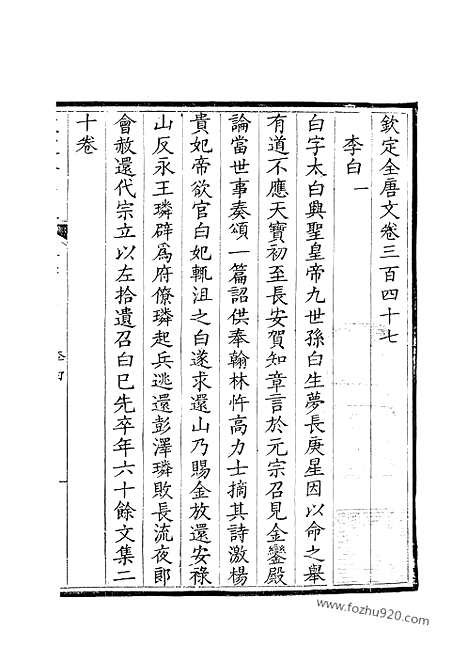 欽定全唐文卷三百四十七
李白一
白字太白興聖皇帝九世孫白生夢長庚星因以命之舉
有道不應天寶初至長安賀知章言於元宗召見金鑾殿
論當世事奏頌一篇詔供奉翰林忤高力士摘其詩激楊
貴妃帝欲官白妃輒沮之白遂求還山乃賜金放還安祿
山反永王璘辟為府僚璘起兵逃還彭澤璘敗長流夜郎
會赦還代宗立以左拾遺召白已先卒年六十餘文集二
十卷
www.fozhu920.com